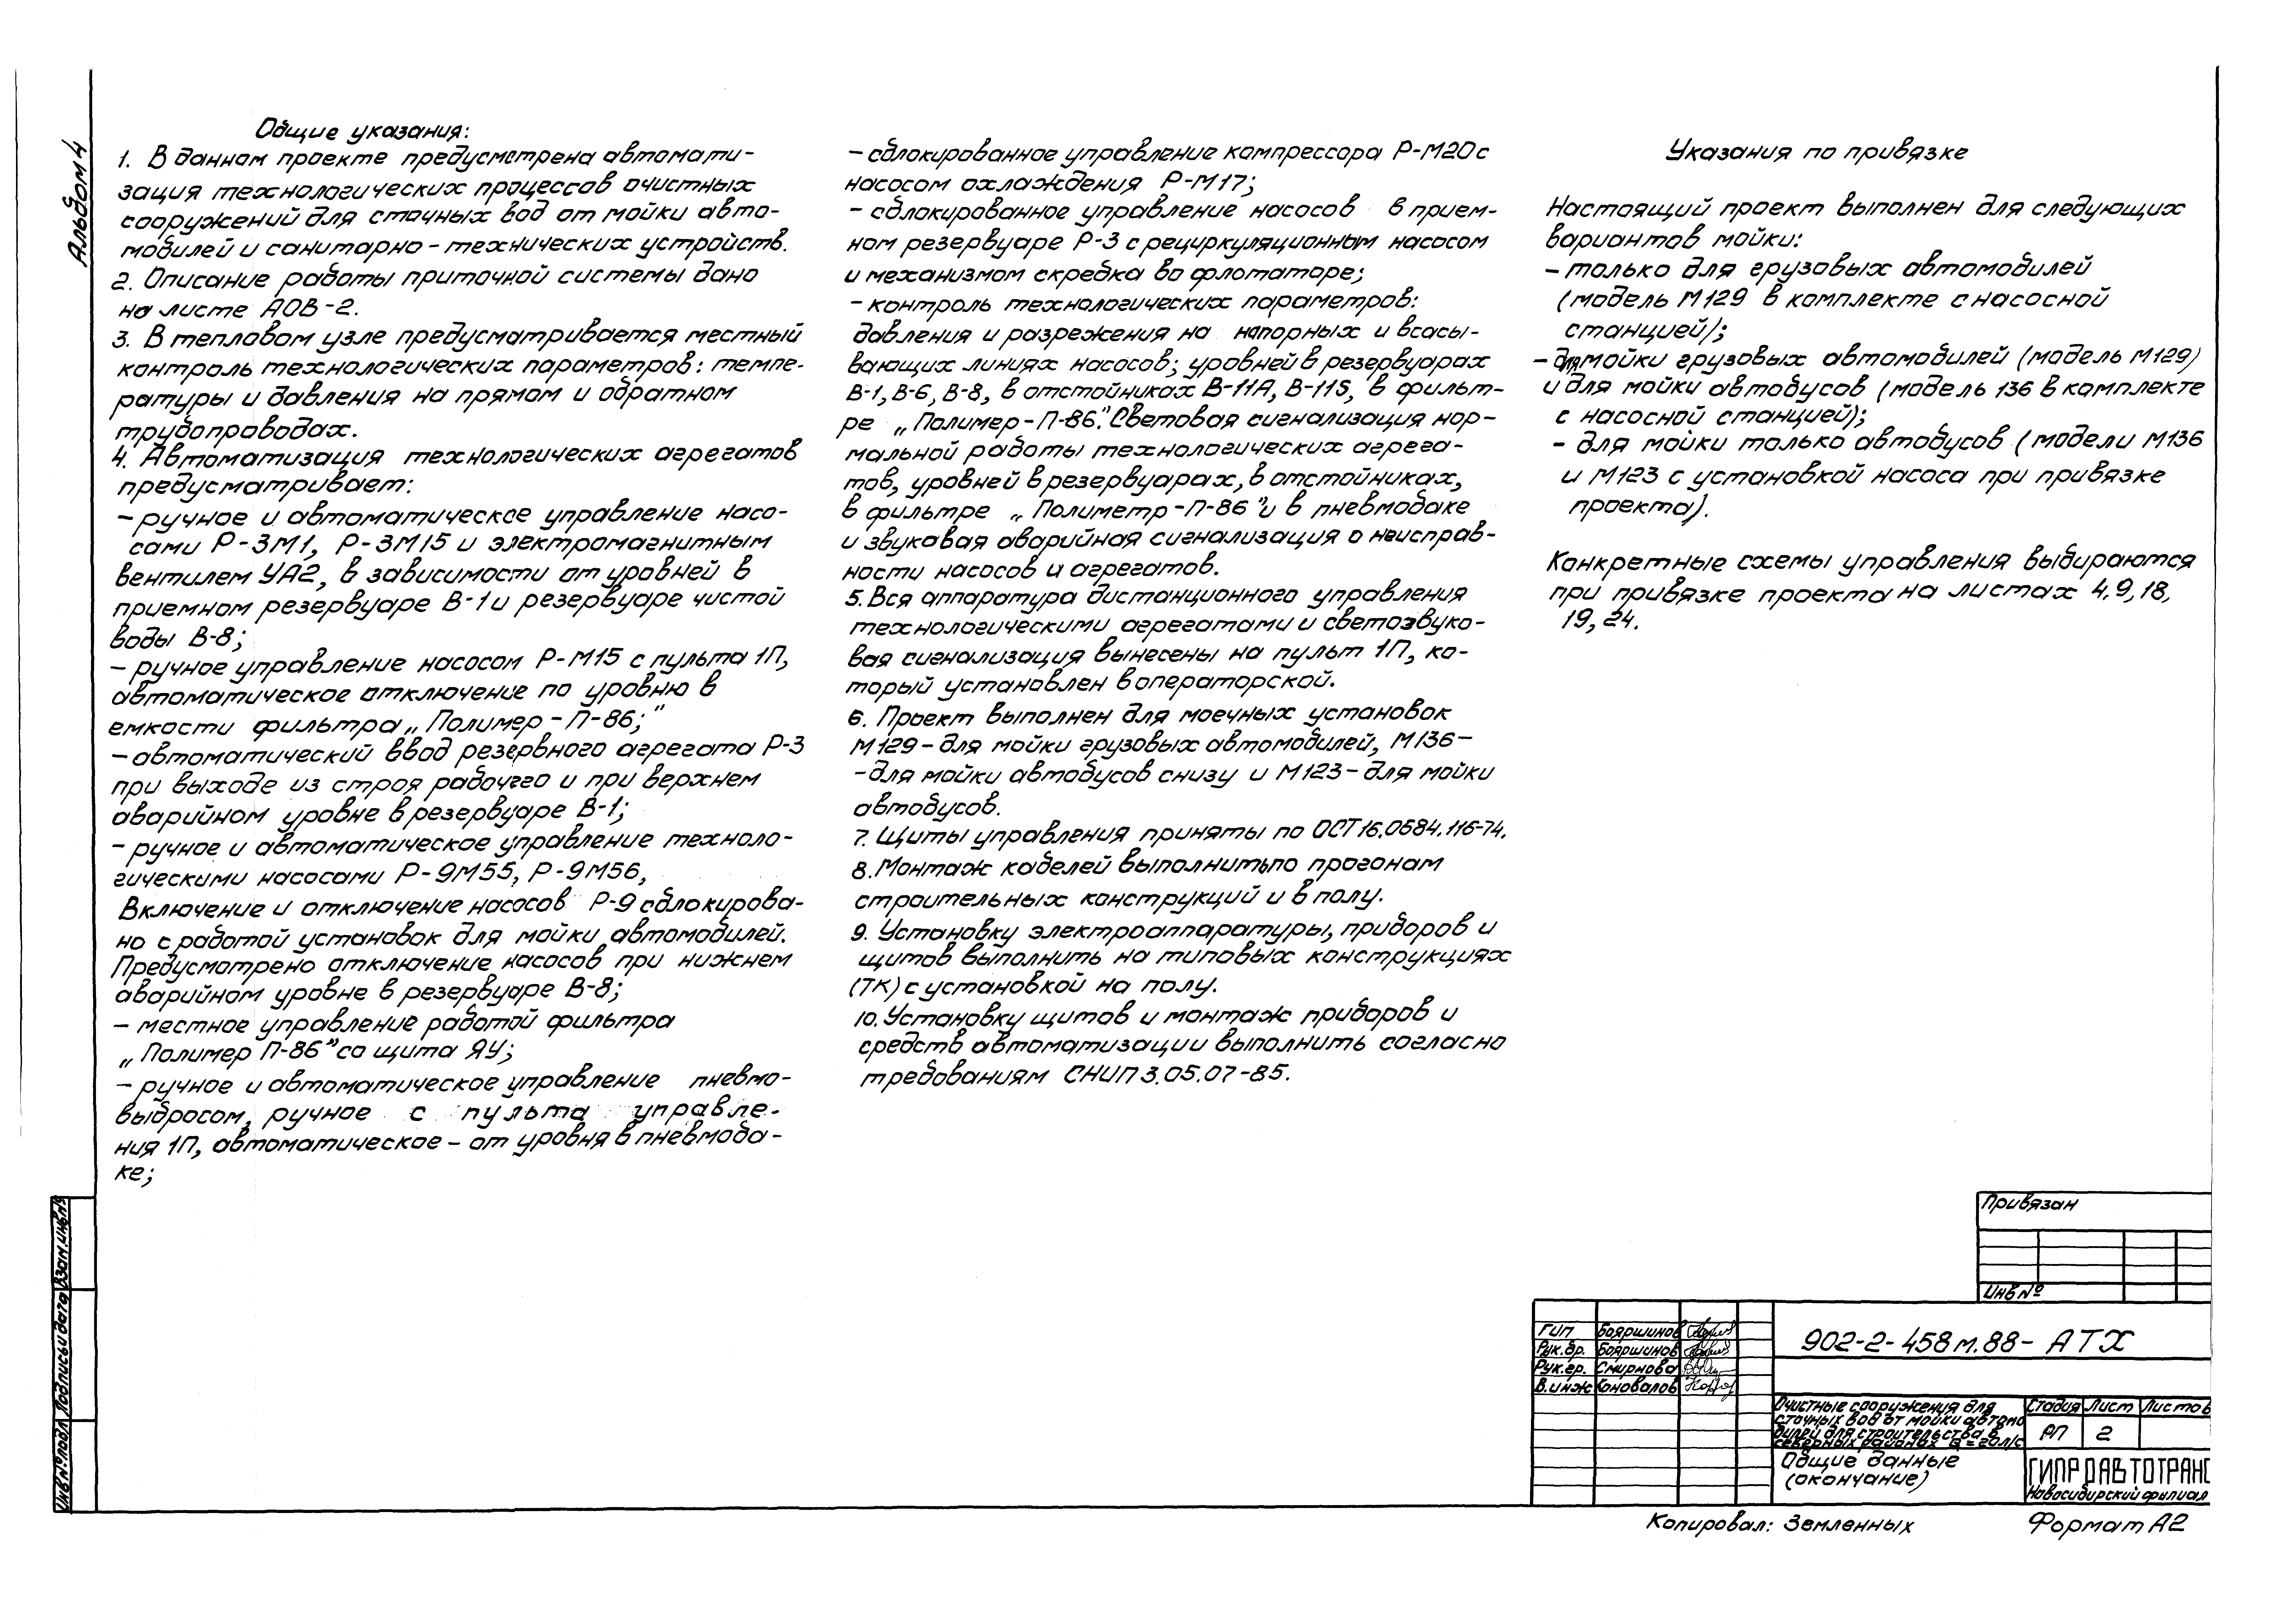 Альбом 4
Общие указания:
1. В данном проекте предусмотрена автомати-
зация технологических процессов очистных
сооружений для сточных вод от мойки авто-
мобилей и санитарно-технических устройств.
2. Описание работы приточной системы дано
на листе АОВ-2.
3. В тепловом узле предусматривается местный
контроль технологических параметров: темпе-
ратуры и давления на прямом и обратном
трубопроводах.
4. Автоматизация технологических агрегатов
предусматривает:
- ручное и автоматическое управление насо-
сами Р-3М1, Р-3М15 и электромагнитным
вентилем УА2, в зависимости от уровней в
приемном резервуаре В-1 и резервуаре чистой
воды В-8;
- ручное управление насосом Р-М15 с пульта 1П,
автоматическое отключение по уровню в
емкости фильтра „Полимер-П-86;"
- автоматический ввод резервного агрегата Р-3
при выходе из строя рабочего и при верхнем
аварийном уровне в резервуаре В-1;
- ручное и автоматическое управление техноло-
гическими насосами Р-9М55, Р-9М56,
Включение и отключение насосов Р-9 сблокирова-
но с работой установок для мойки автомобилей.
Предусмотрено отключение насосов при нижнем
аварийном уровне в резервуаре В-8;
- местное управление работой фильтра
„Полимер П-86" со щита ЯУ;
- ручное и автоматическое управление пневмо-
выбросом, ручное с пульта управле-
ния 1П, автоматическое - от уровня в пневмоба-
ке;
- сблокированное управление компрессора Р-М20 с
насосом охлаждения Р-М17;
- сблокированное управление насосов в прием-
ном резервуаре Р-3 с рециркуляционным насосом
и механизмом скребка во флотаторе;
- контроль технологических параметров:
давления и разрежения на напорных и всасы-
вающих линиях насосов; уровней в резервуарах
В-1, В-6, В-8, в отстойниках В-11А, В-11Б, в фильт-
ре „Полимер-П-86". Световая сигнализация нор-
мальной работы технологических агрега-
тов, уровней в резервуарах, в отстойниках,
в фильтре „Полиметр-П-86" и в пневмобаке
и звуковая аварийная сигнализация о неисправ-
ности насосов и агрегатов.
5. Вся аппаратура дистанционного управления
технологическими агрегатами и светозвуко-
вая сигнализация вынесены на пульт 1П, ко-
торый установлен в операторской.
6. Проект выполнен для моечных установок
М129 - для мойки грузовых автомобилей, М136 -
- для мойки автобусов снизу и М123 - для мойки
автобусов.
7. Щиты управления приняты по ОСТ16.0684.116-74.
8. Монтаж кабелей выполнить по прогонам
строительных конструкций и в полу.
9. Установку электроаппаратуры, приборов и
щитов выполнить на типовых конструкциях
(ТК) с установкой на полу.
10. Установку щитов и монтаж приборов и
средств автоматизации выполнить согласно
требованиям СНИП 3.05.07-85.
Указания по привязке
Настоящий проект выполнен для следующих
вариантов мойки:
- только для грузовых автомобилей
(модель М129 в комплекте с насосной
станцией);
- для мойки грузовых автомобилей (модель М129)
и для мойки автобусов (модель 136 в комплекте
с насосной станцией);
- для мойки только автобусов (модели М136
и М123 с установкой насоса при привязке
проекта).
Конкретные схемы управления выбираются
при привязке проекта на листах 4, 9, 18,
19, 24.
Привязан
Инв №
ГИП Бояршинов
Рук.бр. Бояршинов
Рук.гр. Смирнова
В.инж Коновалов
902-2-458м.88- АТХ
Очистные сооружения для
сточных вод от мойки автомо
билей для строительства в
северных районах Q=20л/с
Стадия Лист Листов
РП 2
Общие данные
(окончание)
ГИПРОАВТОТРАНС
Новосибирский филиал
Копировал: Земленных
Формат А2
Взам.инв№
Подпись и дата
Инв № подл